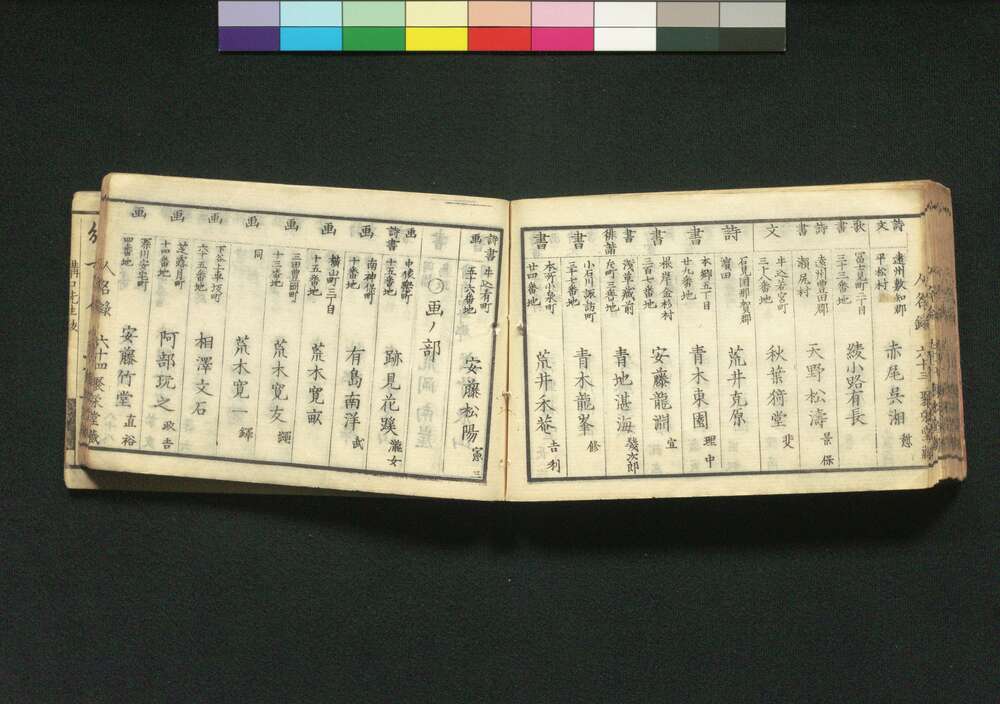 人名録 六十三
詩 文 遠州敷知郡 平松村 赤尾呉湘
歌 書 冨士見町二丁目 三十三番地 綾小路有長
詩 書 遠州豊田郡 瀬尻村 天野松濤 景保
文 牛込若宮町 三十八番地 秋葉猗堂 斐
詩 石見国那賀郡 濱田 荒井克原
書 本郷五丁目 廿九番地 青木東園 理中
書 根岸金杉村 三百七番地 安藤龍淵 宣
書 俳諧 浅草蔵前 青地湛海 發次郎
書 小石川諏訪町 三十七番地 青木龍峯 修
書 本所小泉町 廿四番地 荒井禾菴 吉利
詩書 画 五十六番地 安藤松陽 憲
〇画ノ部
画 詩書 中猿樂町 十五番地 跡見花蹊 瀧女
画 南神保町 十番地 有島南洋 武
画 横山町三丁目 十五番地 荒木寛畝
画 三田豊岡町 十三番地 荒木寛友
画 同 荒木寛一 鐸
画 下谷上車坂町 六十五番地 相澤文石
画 芝露月町 十四番地 阿部玩之 政吉
画 四番地 安藤竹堂 直裕
人名録 六十四